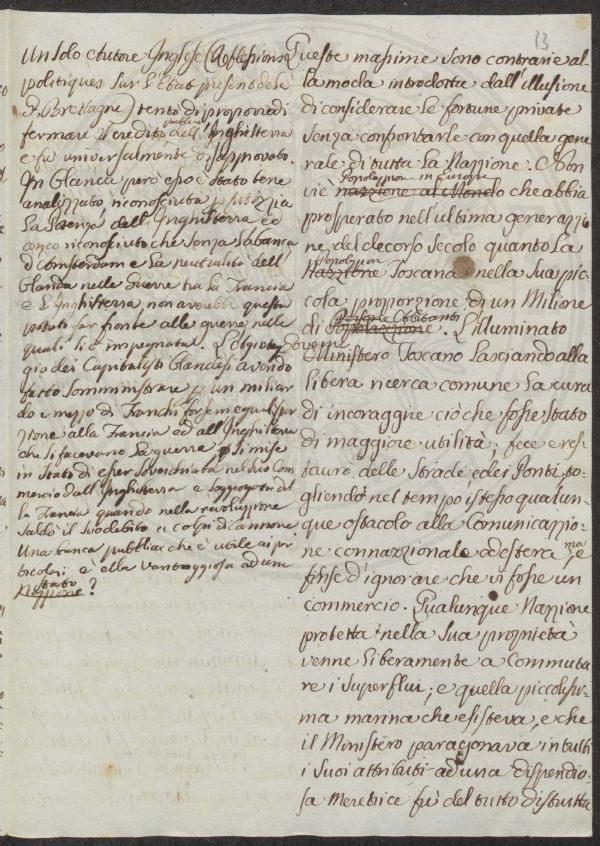 13
Un solo Autore Inglese (Reflessions
politiques sur l'Etat present de la
G. Brettagne) tentò di proporre di
fermare il credito publico dell'Inghilterra
e fù universalmente disapprovato.
In Olanda però esso è stato bene
analizzato, riconosciuta p giustizia
la Potenza dell'Inghilterra ed
anco riconosciuto che senza la banca
d'Amsterdam e la neutralità dell'
Olanda nelle Guerre tra la Francia
e l'Inghilterra, non averebbe questa
potuto far fronte alle guerre nelle
quali si è impegnata.
gio dei Capitalisti Olandesi avendo
fatto somministrare p un miliar
do e mezzo di Franchi forse in egual por
zione alla Francia ed all'Inghilterra
che si facevano la guerra, si mise
in stato di esser soverchiata nel suo Com
mercio dall'Inghilterra e soggiogata dal
la Francia quando nella rivoluzione
saldò il suo debito a colpi di Cannone
Una banca pubblica che è utile ai par
ticolari è ella vantaggiosa ad uno
Stato
Nazione?
Queste massime sono contrarie al
la moda introdotta dall'illusione
di considerare le fortune private
senza confrontarle con quella gene
rale di tutta la Nazzione. Non
Popolazzion in Europa
viè nazzione al Mondo che abbia
prosperato nell'ultima generazzio
ne del decorso secolo quanto la
Popolazzion
Nazzione Toscana nella sua pic
cola proporzione di un Milione
Persone Abbitanti
di Popolazzione. L'illuminato
Governo
Ministero Toscano lasciando alla
libera ricerca comune la cura
di incoraggire ciò che fosse stato
di maggiore utilità; fece e res
taurò delle Strade, e dei Ponti, to-
gliendo nel tempo istesso qualun-
que ostacolo alla Comunicazzio-
ne connazzionale ad esterca, ma e
finse d'ignorare che vi fosse un
commercio. Qualunque Nazzione
protetta nella sua proprietà
venne liberamente a Commuta
re i superflui; e quella piccolissi-
ma marina che esisteva, e che
il Ministero paragonava in tutti
i suoi attributi ad una dispendio-
sa Meretrice fù del tutto distrutta